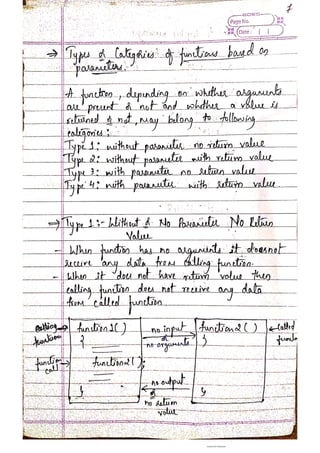 1
Page No.
Date
→ Types & Categories of functions based on
parameters.
A function, depending on whether arguments
are present & not and whether a value is
returned & not, may belong to following
categories :
Type 1 : without parameter no return value
Type 2 : without parameter with return value
Type 3 : with parameter no return value
Type 4 : with parameter with return value.
⇒ Type 1 :- Without & No Parameter No Return
Value
- When function has no arguments it doesnot
receive any data from calling function.
- When it does not have return value then
calling function does not receive any data
from called function
calling function → function1( ) no input & no arguments function2( ) ← Called function
{ {
function call → function2( );
} no output & no return value }